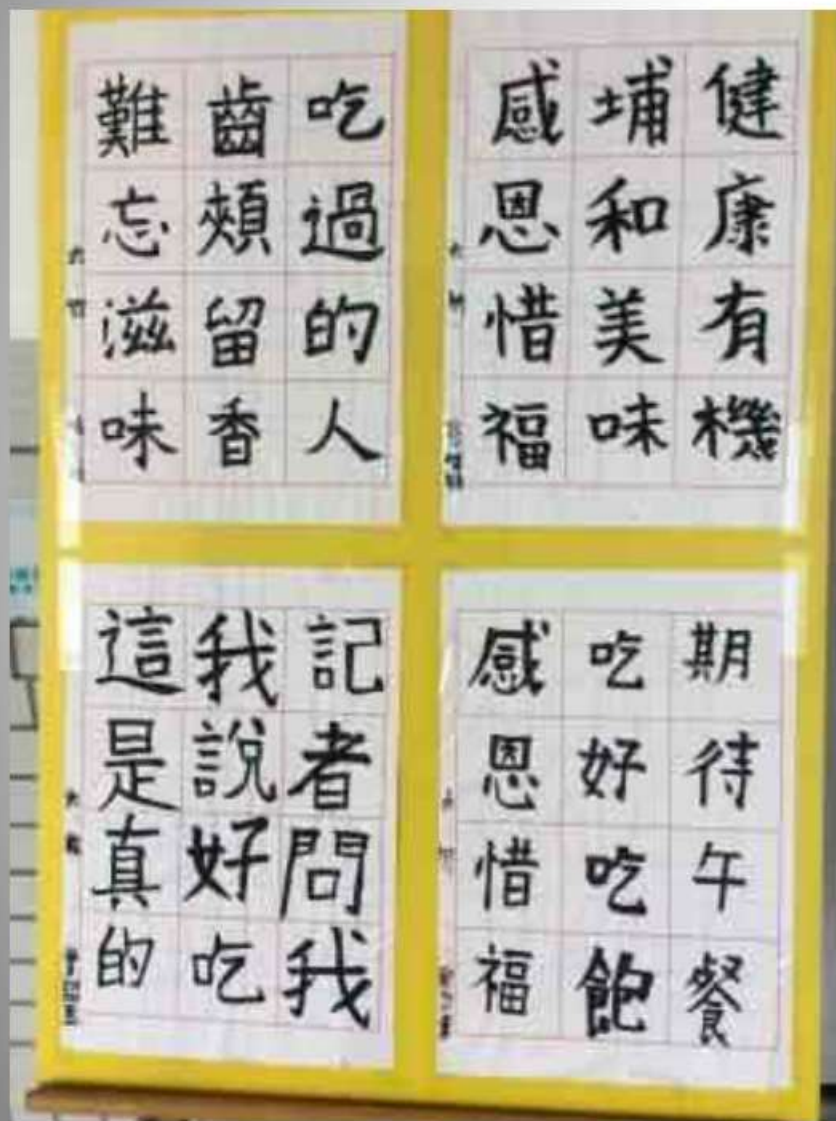 健康有機
埔和美味
感恩惜福
吃過的人
齒頰留香
難忘滋味
期待午餐
吃好吃飽
感恩惜福
記者問我
我說好吃
這是真的